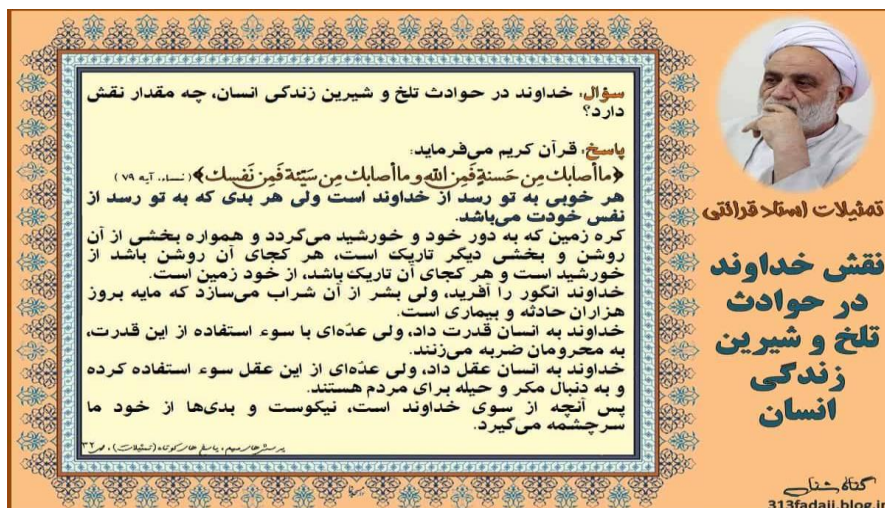 سؤال، خداوند در حوادث تلخ و شیرین زندگی انسان، چه مقدار نقش
دارد؟
پاسخ، قرآن کریم می‌فرماید:
﴿ما أصابك مِن حَسنةٍ فَمِن اللهِ و ما أصابك مِن سَيّئة فَمِن نَفسك﴾ (نساء، آیه ۷۹)
هر خوبی به تو رسد از خداوند است ولی هر بدی که به تو رسد از
نفس خودت می‌باشد.
کره زمین که به دور خود و خورشید می‌گردد و همواره بخشی از آن
روشن و بخشی دیگر تاریک است، هر کجای آن روشن باشد از
خورشید است و هر کجای آن تاریک باشد، از خود زمین است.
خداوند انگور را آفرید، ولی بشر از آن شراب می‌سازد که مایه بروز
هزاران حادثه و بیماری است.
خداوند به انسان قدرت داد، ولی عدّه‌ای با سوء استفاده از این قدرت،
به محرومان ضربه می‌زنند.
خداوند به انسان عقل داد، ولی عدّه‌ای از این عقل سوء استفاده کرده
و به دنبال مکر و حیله برای مردم هستند.
پس آنچه از سوی خداوند است، نیکوست و بدی‌ها از خود ما
سرچشمه می‌گیرد.
پرسش‌های مهم، پاسخ‌های کوتاه (تمثیلات)، ص ۳۲
تمثیلات استاد قرائتی
نقش خداوند
در حوادث
تلخ و شیرین
زندگی
انسان
گناه شناسی
313fadaii.blog.ir